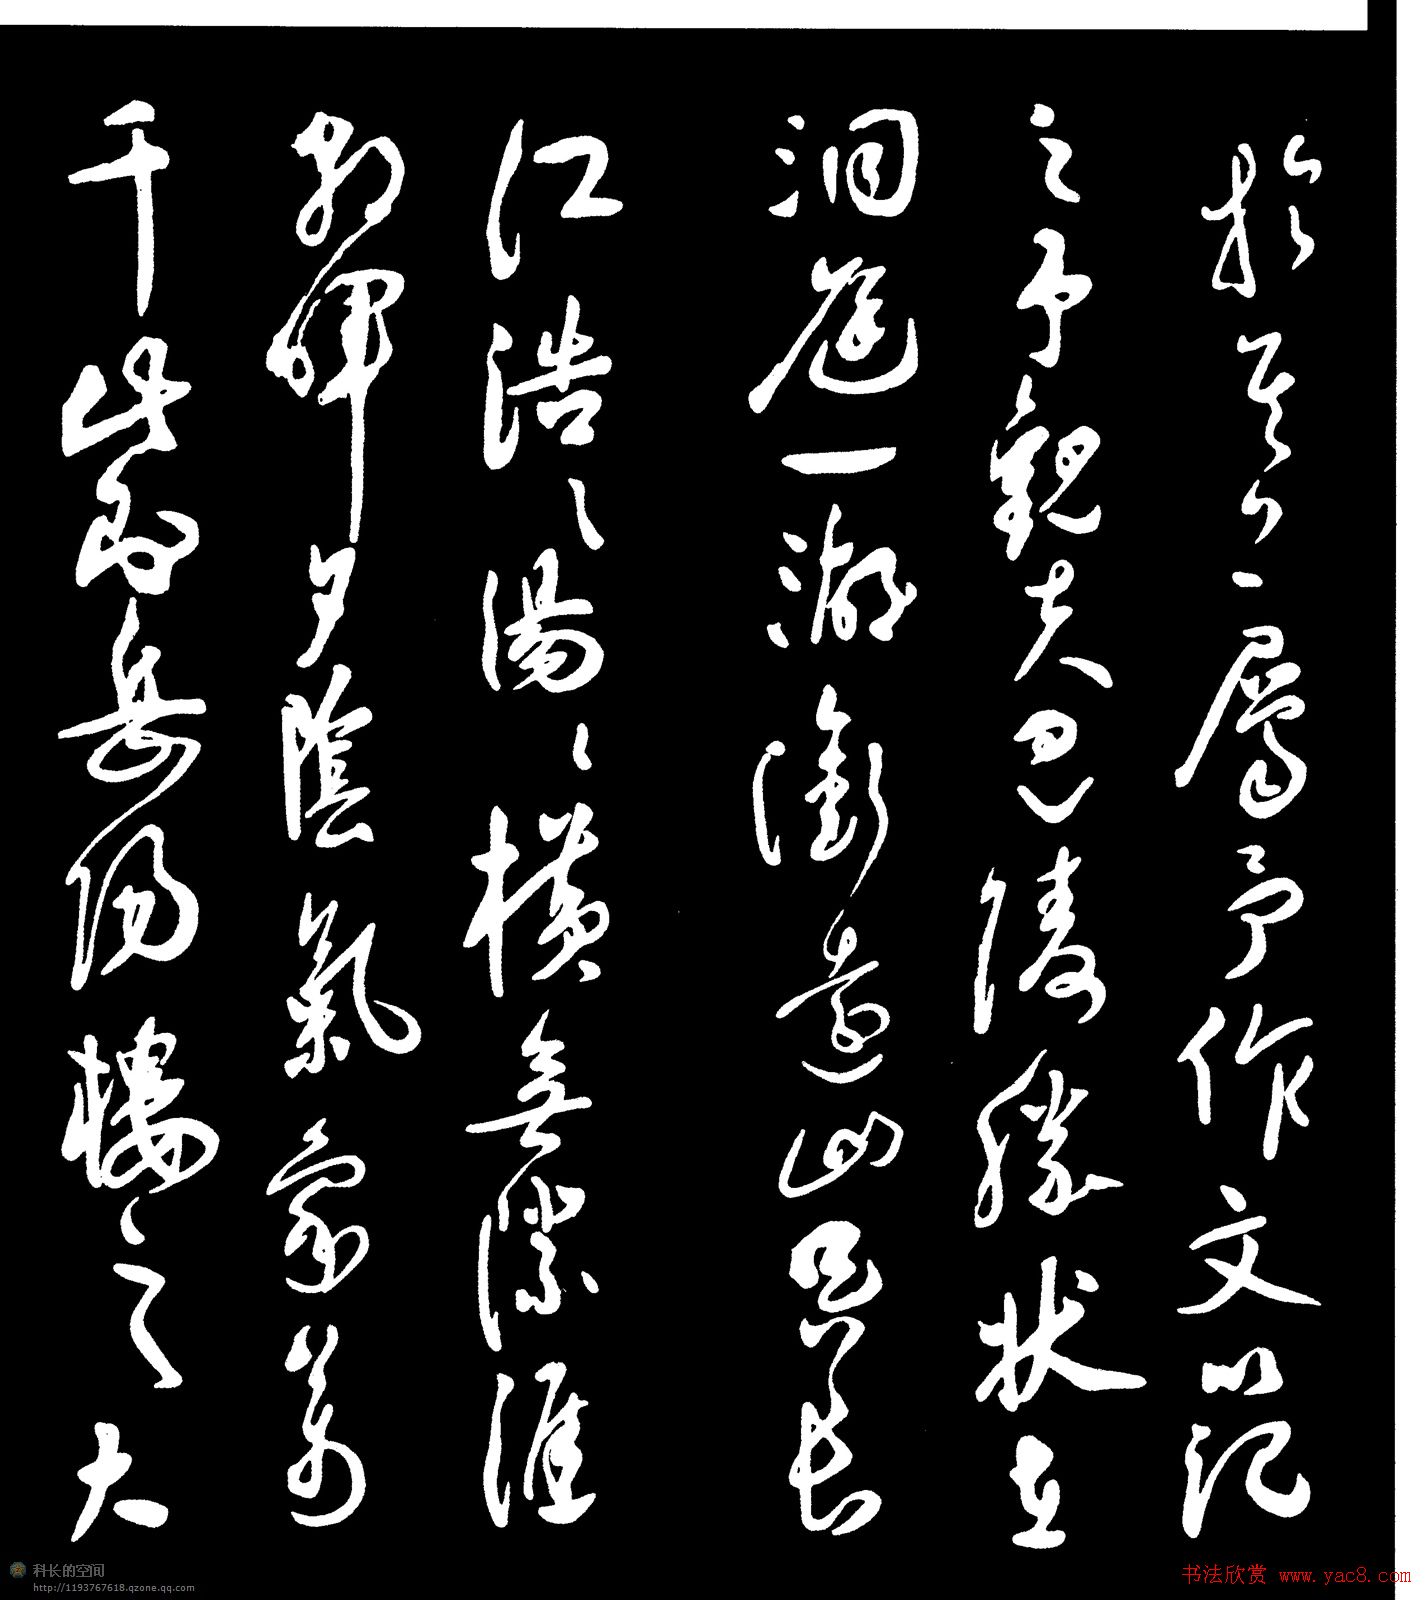 於其上屬予作文以記
之予觀夫巴陵勝狀在
洞庭一湖銜遠山吞長
江浩〻湯〻橫無際涯
朝暉夕陰氣象萬
千此則岳陽樓之大
科长的空间
http://1193767618.qzone.qq.com
书法欣赏 www.yac8.com